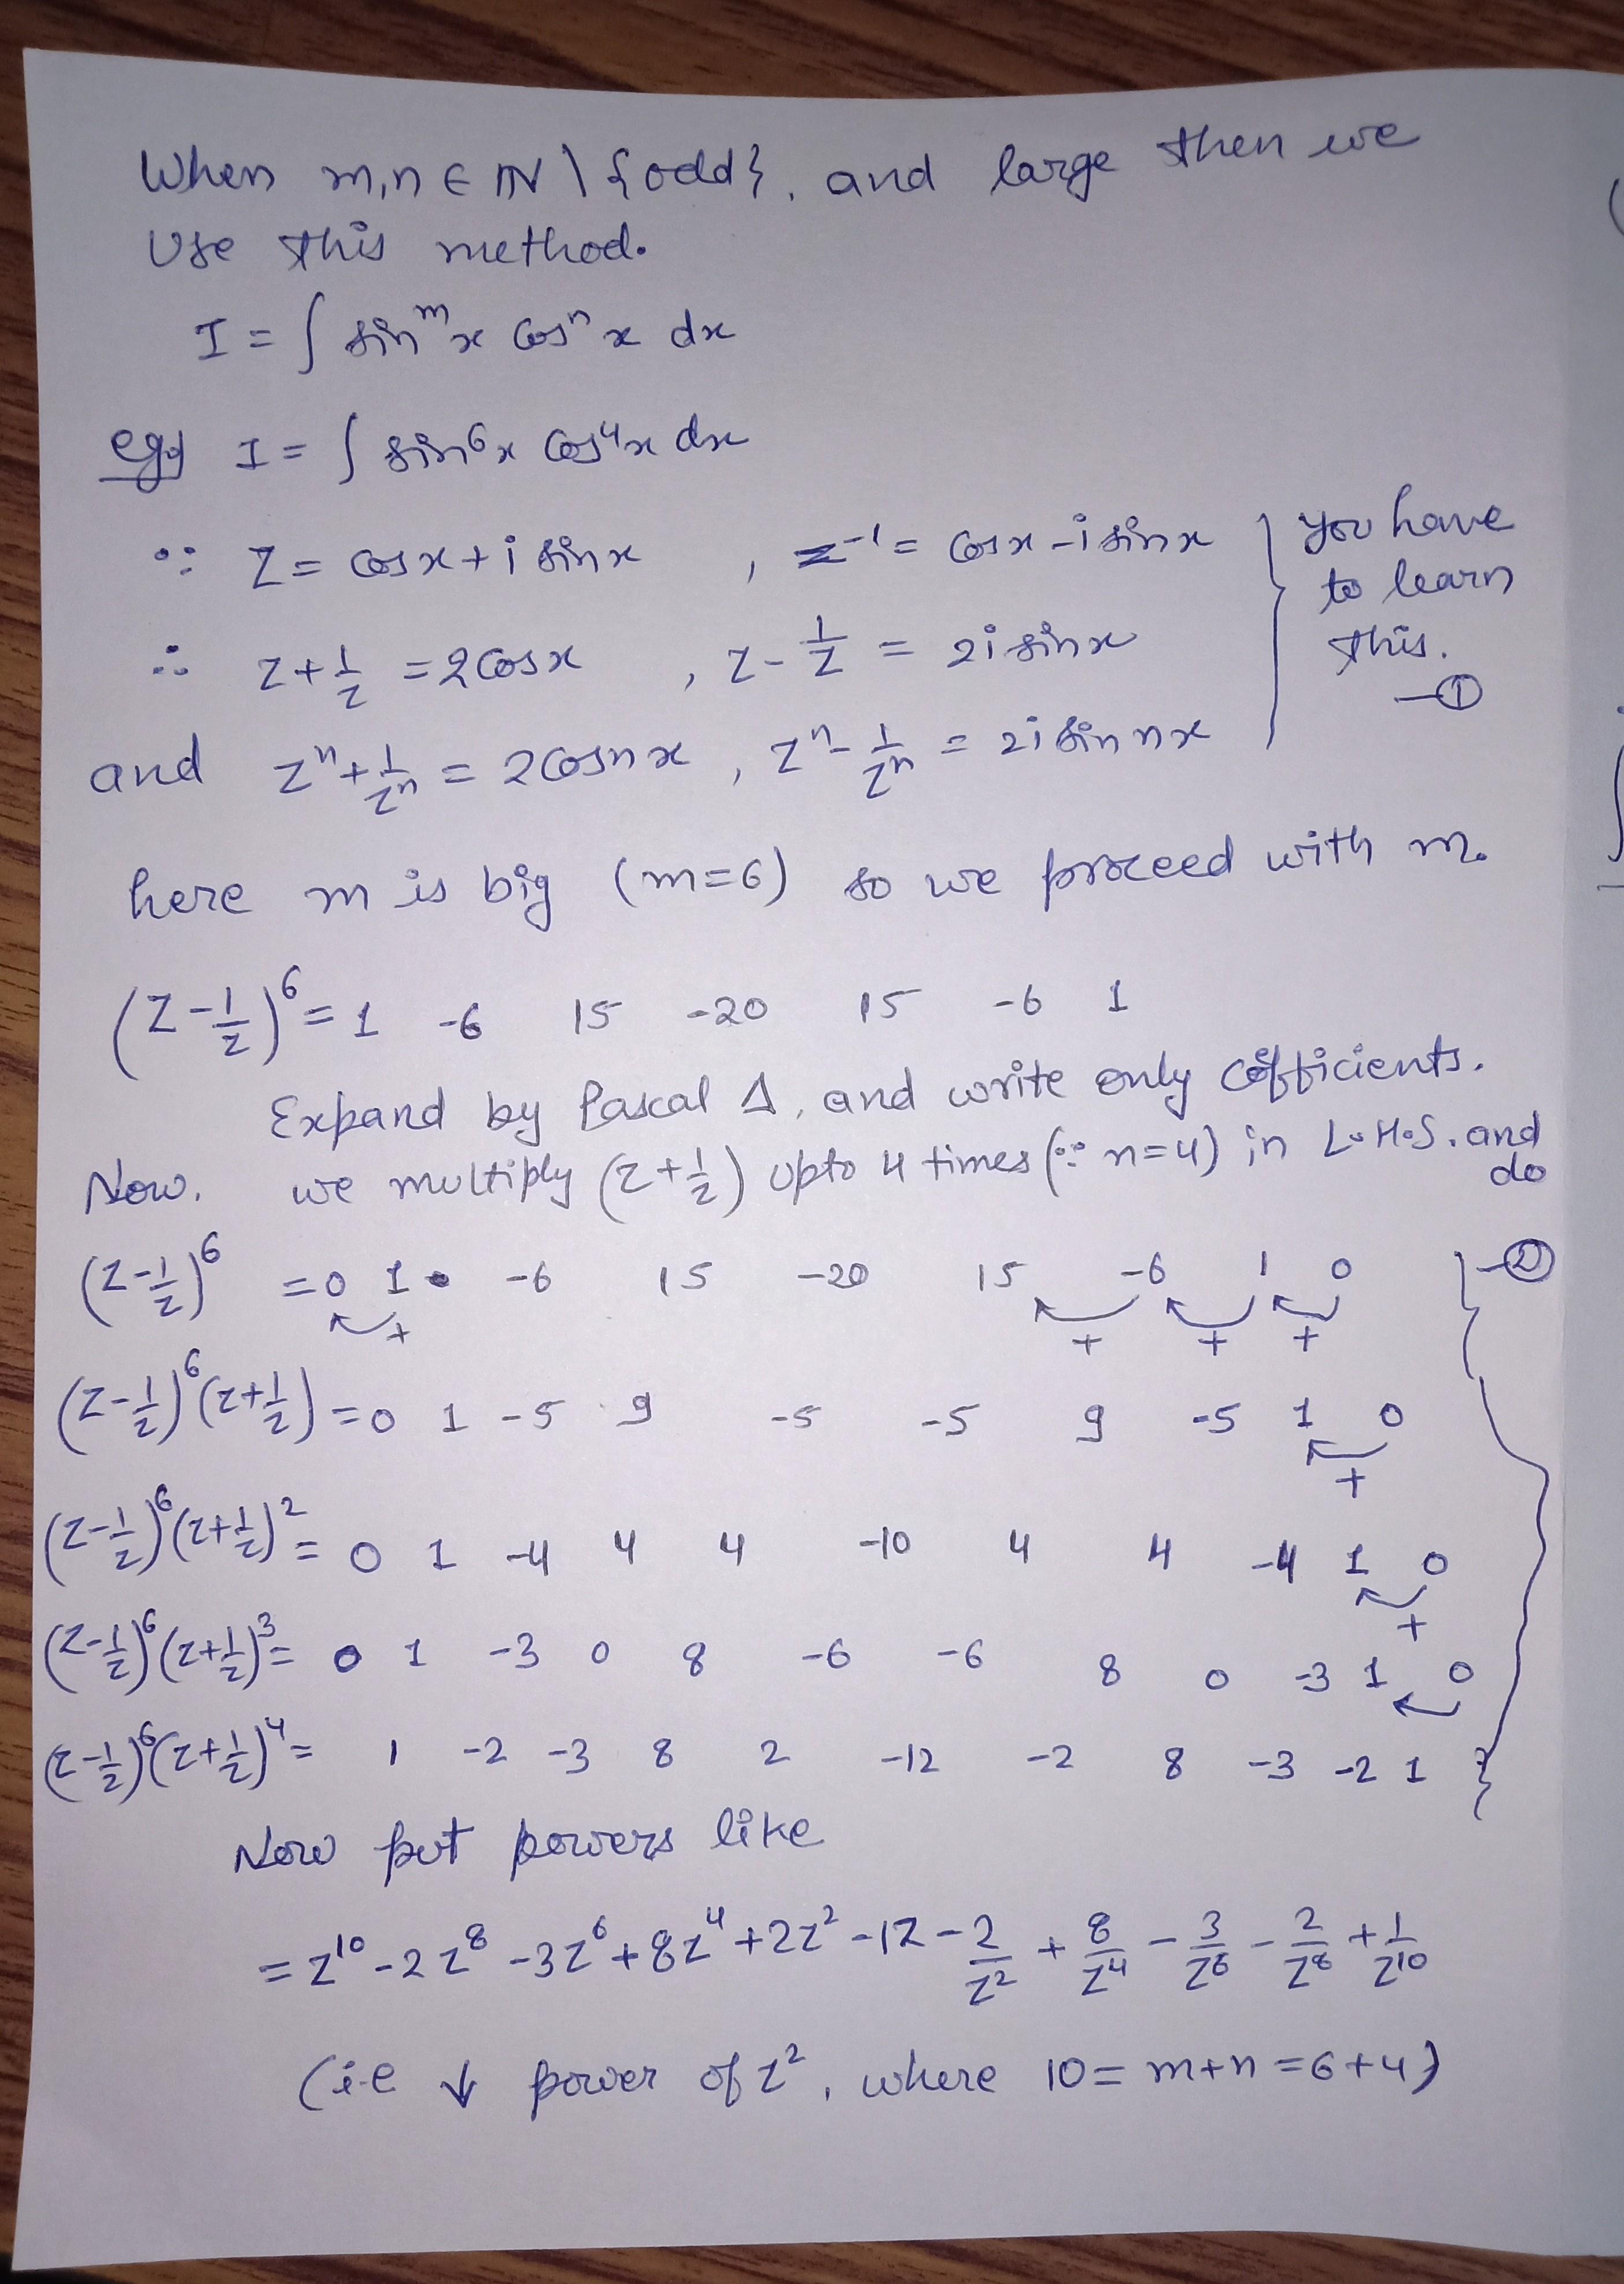 When m,n ∈ ℕ \ {odd}, and large then we
Use this method.
I = ∫ sin^m x cos^n x dx
eg:) I = ∫ sin^6 x cos^4 x dx
∵ Z = cosx + i sinx , z^-1 = cosx - i sinx } you have to learn this. —①
∴ z + 1/z = 2cosx , z - 1/z = 2i sinx
and z^n + 1/z^n = 2cosnx , z^n - 1/z^n = 2i sin nx
here m is big (m=6) so we proceed with m.
(z - 1/z)^6 = 1 -6 15 -20 15 -6 1
Expand by Pascal Δ, and write only cofficients.
Now, we multiply (z + 1/z) upto 4 times (∵ n=4) in L.H.S. and do
(z - 1/z)^6 = 0 1 -6 15 -20 15 -6 1 0 —②
+ + + +
(z - 1/z)^6 (z + 1/z) = 0 1 -5 9 -5 -5 9 -5 1 0
+
(z - 1/z)^6 (z + 1/z)^2 = 0 1 -4 4 4 -10 4 4 -4 1 0
+
(z - 1/z)^6 (z + 1/z)^3 = 0 1 -3 0 8 -6 -6 8 0 -3 1 0
(z - 1/z)^6 (z + 1/z)^4 = 1 -2 -3 8 2 -12 -2 8 -3 -2 1
Now put powers like
= z^10 - 2z^8 - 3z^6 + 8z^4 + 2z^2 - 12 - 2/z^2 + 8/z^4 - 3/z^6 - 2/z^8 + 1/z^10
(i.e ↓ power of z^2, where 10 = m+n = 6+4)